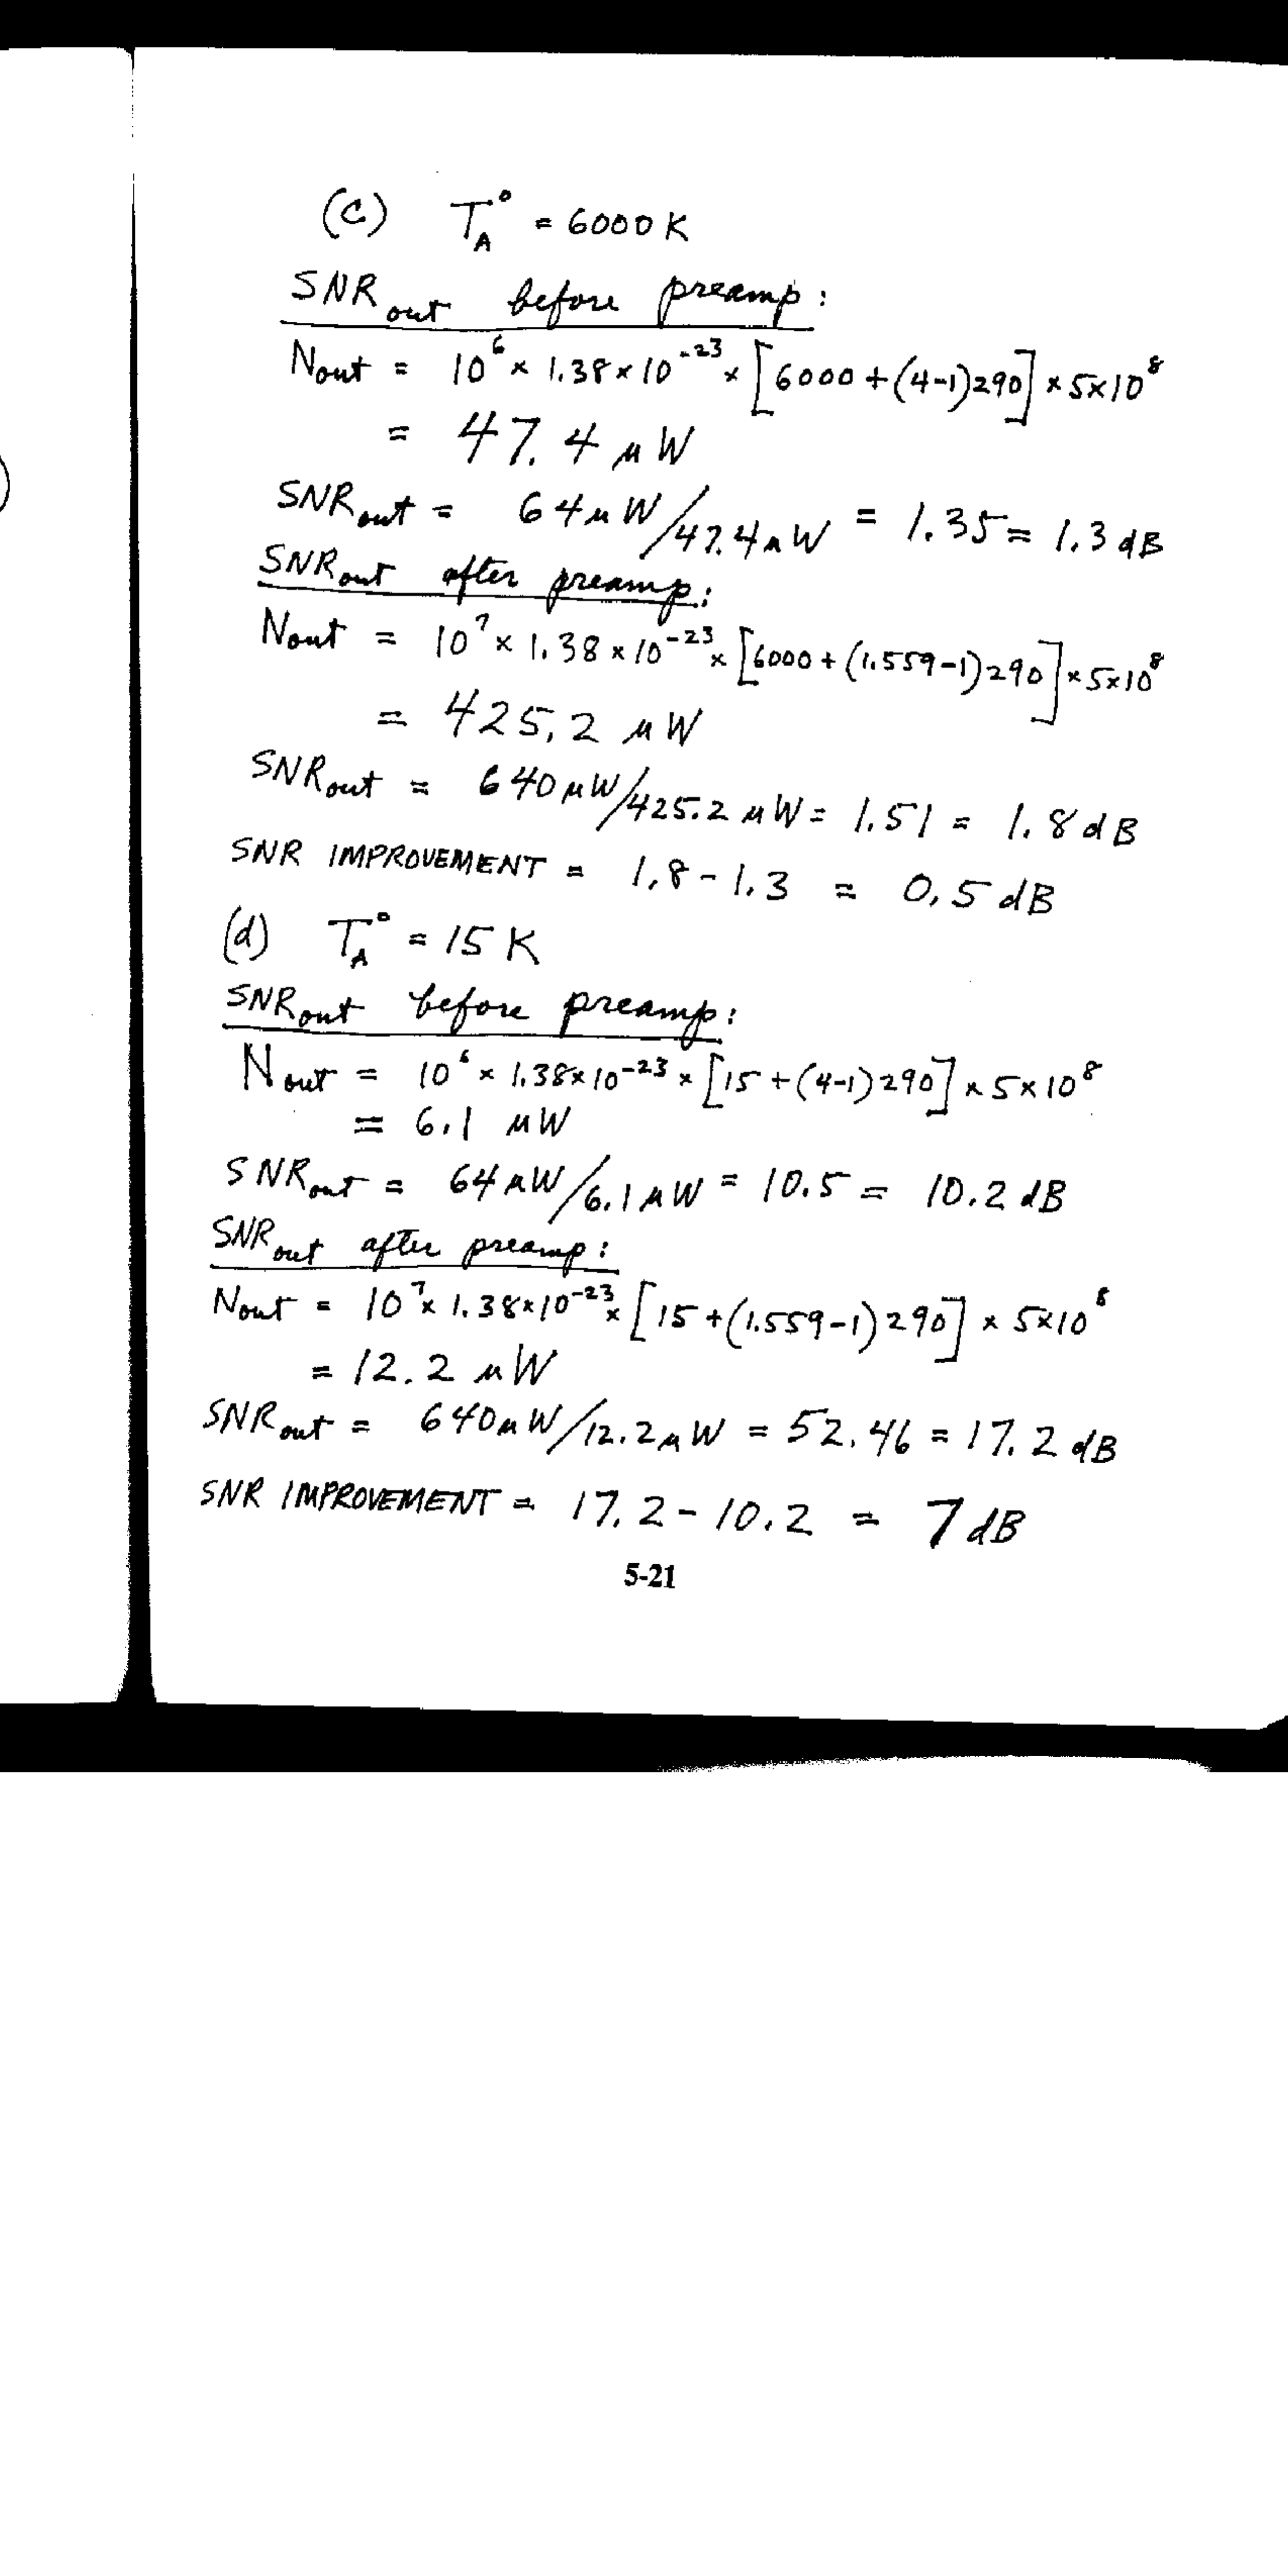 (c) T_A° = 6000 K
SNR_out before preamp:
N_out = 10^6 × 1.38×10^-23 × [6000 + (4-1)290] × 5×10^8
= 47.4 μW
SNR_out = 64μW/47.4μW = 1.35 = 1.3 dB
SNR_out after preamp:
N_out = 10^7 × 1.38 × 10^-23 × [6000 + (1.559-1)290] × 5×10^8
= 425.2 μW
SNR_out = 640μW/425.2 μW = 1.51 = 1.8 dB
SNR IMPROVEMENT = 1.8 - 1.3 = 0.5 dB
(d) T_A° = 15 K
SNR_out before preamp:
N_out = 10^6 × 1.38×10^-23 × [15 + (4-1)290] × 5×10^8
= 6.1 μW
SNR_out = 64μW/6.1μW = 10.5 = 10.2 dB
SNR_out after preamp:
N_out = 10^7 × 1.38×10^-23 × [15 + (1.559-1)290] × 5×10^8
= 12.2 μW
SNR_out = 640μW/12.2μW = 52.46 = 17.2 dB
SNR IMPROVEMENT = 17.2 - 10.2 = 7 dB
5-21